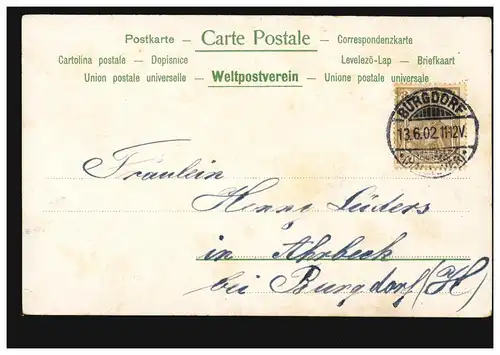 Postkarte — Carte Postale — Correspondenzkarte
Cartolina postale — Dopisnice Levelező-Lap — Briefkaart
Union postale universelle — Weltpostverein — Unione postale universale
BURGDORF
13.6.02.11-12V.
(HANNOVER)
Fräulein
Henny Lüders
in Ahrbeck
bei Burgdorf (H)